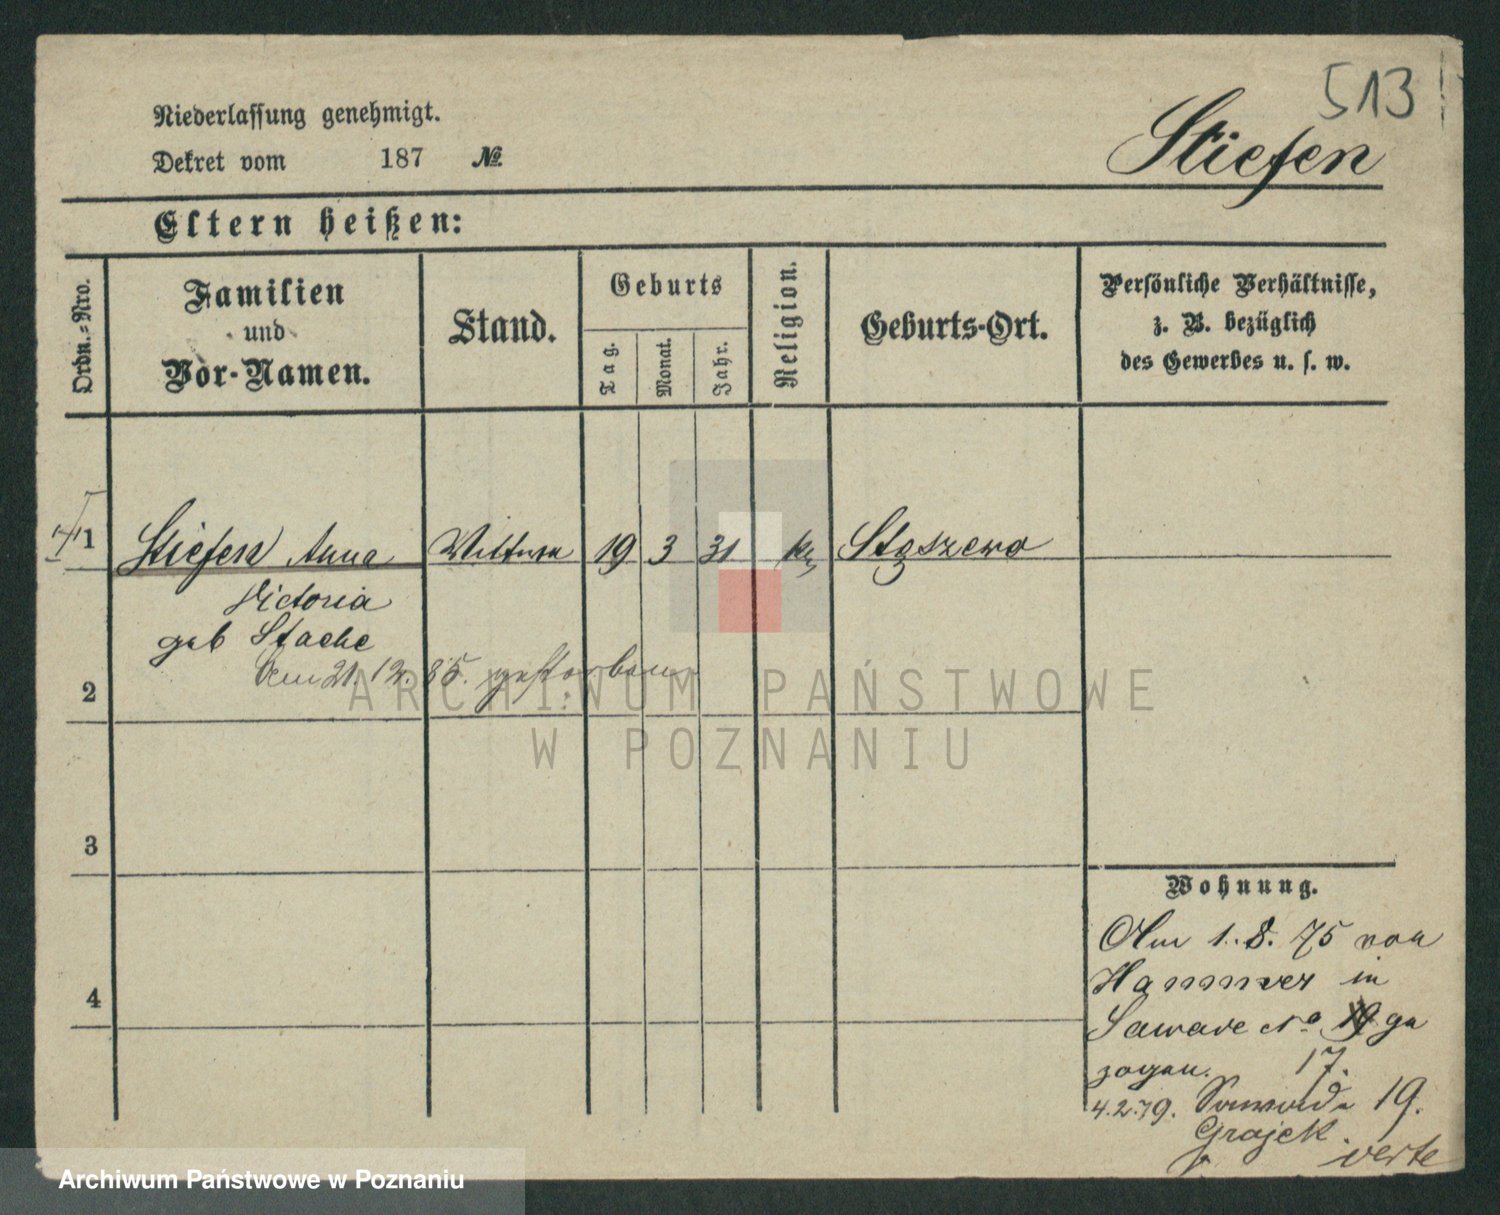 513
Stiefen
Niederlassung genehmigt.
Dekret vom 187 №
Eltern heißen:
Ordn.-Nro.
Familien und Vor-Namen.
Stand.
Geburts
Tag.
Monat.
Jahr.
Religion.
Geburts-Ort.
Persönliche Verhältnisse,
z. B. bezüglich
des Gewerbes u. s. w.
1 Stiefen Anna Wittwe 19 3 31 Stęszewo
Victoria
geb Stache
Den 21.12.85. gestorben
2
3
4
Wohnung.
Am 1.8.75 von
Hannover in
Sawade No 19 ge
zogen. 17.
4.2.79. Sawade 19.
Grajek.
verte
ARCHIWUM PAŃSTWOWE
W POZNANIU
Archiwum Państwowe w Poznaniu